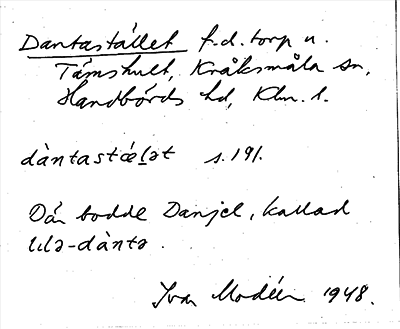 Dantastället f.d. torp u.
Tämshult, Kråksmåla sn,
Handbörds hd, Klm. l.
dàntastæḷət s. 191.
Där bodde Danjel, kallad
lılə-dàntə.
Ivar Modéer 1948.